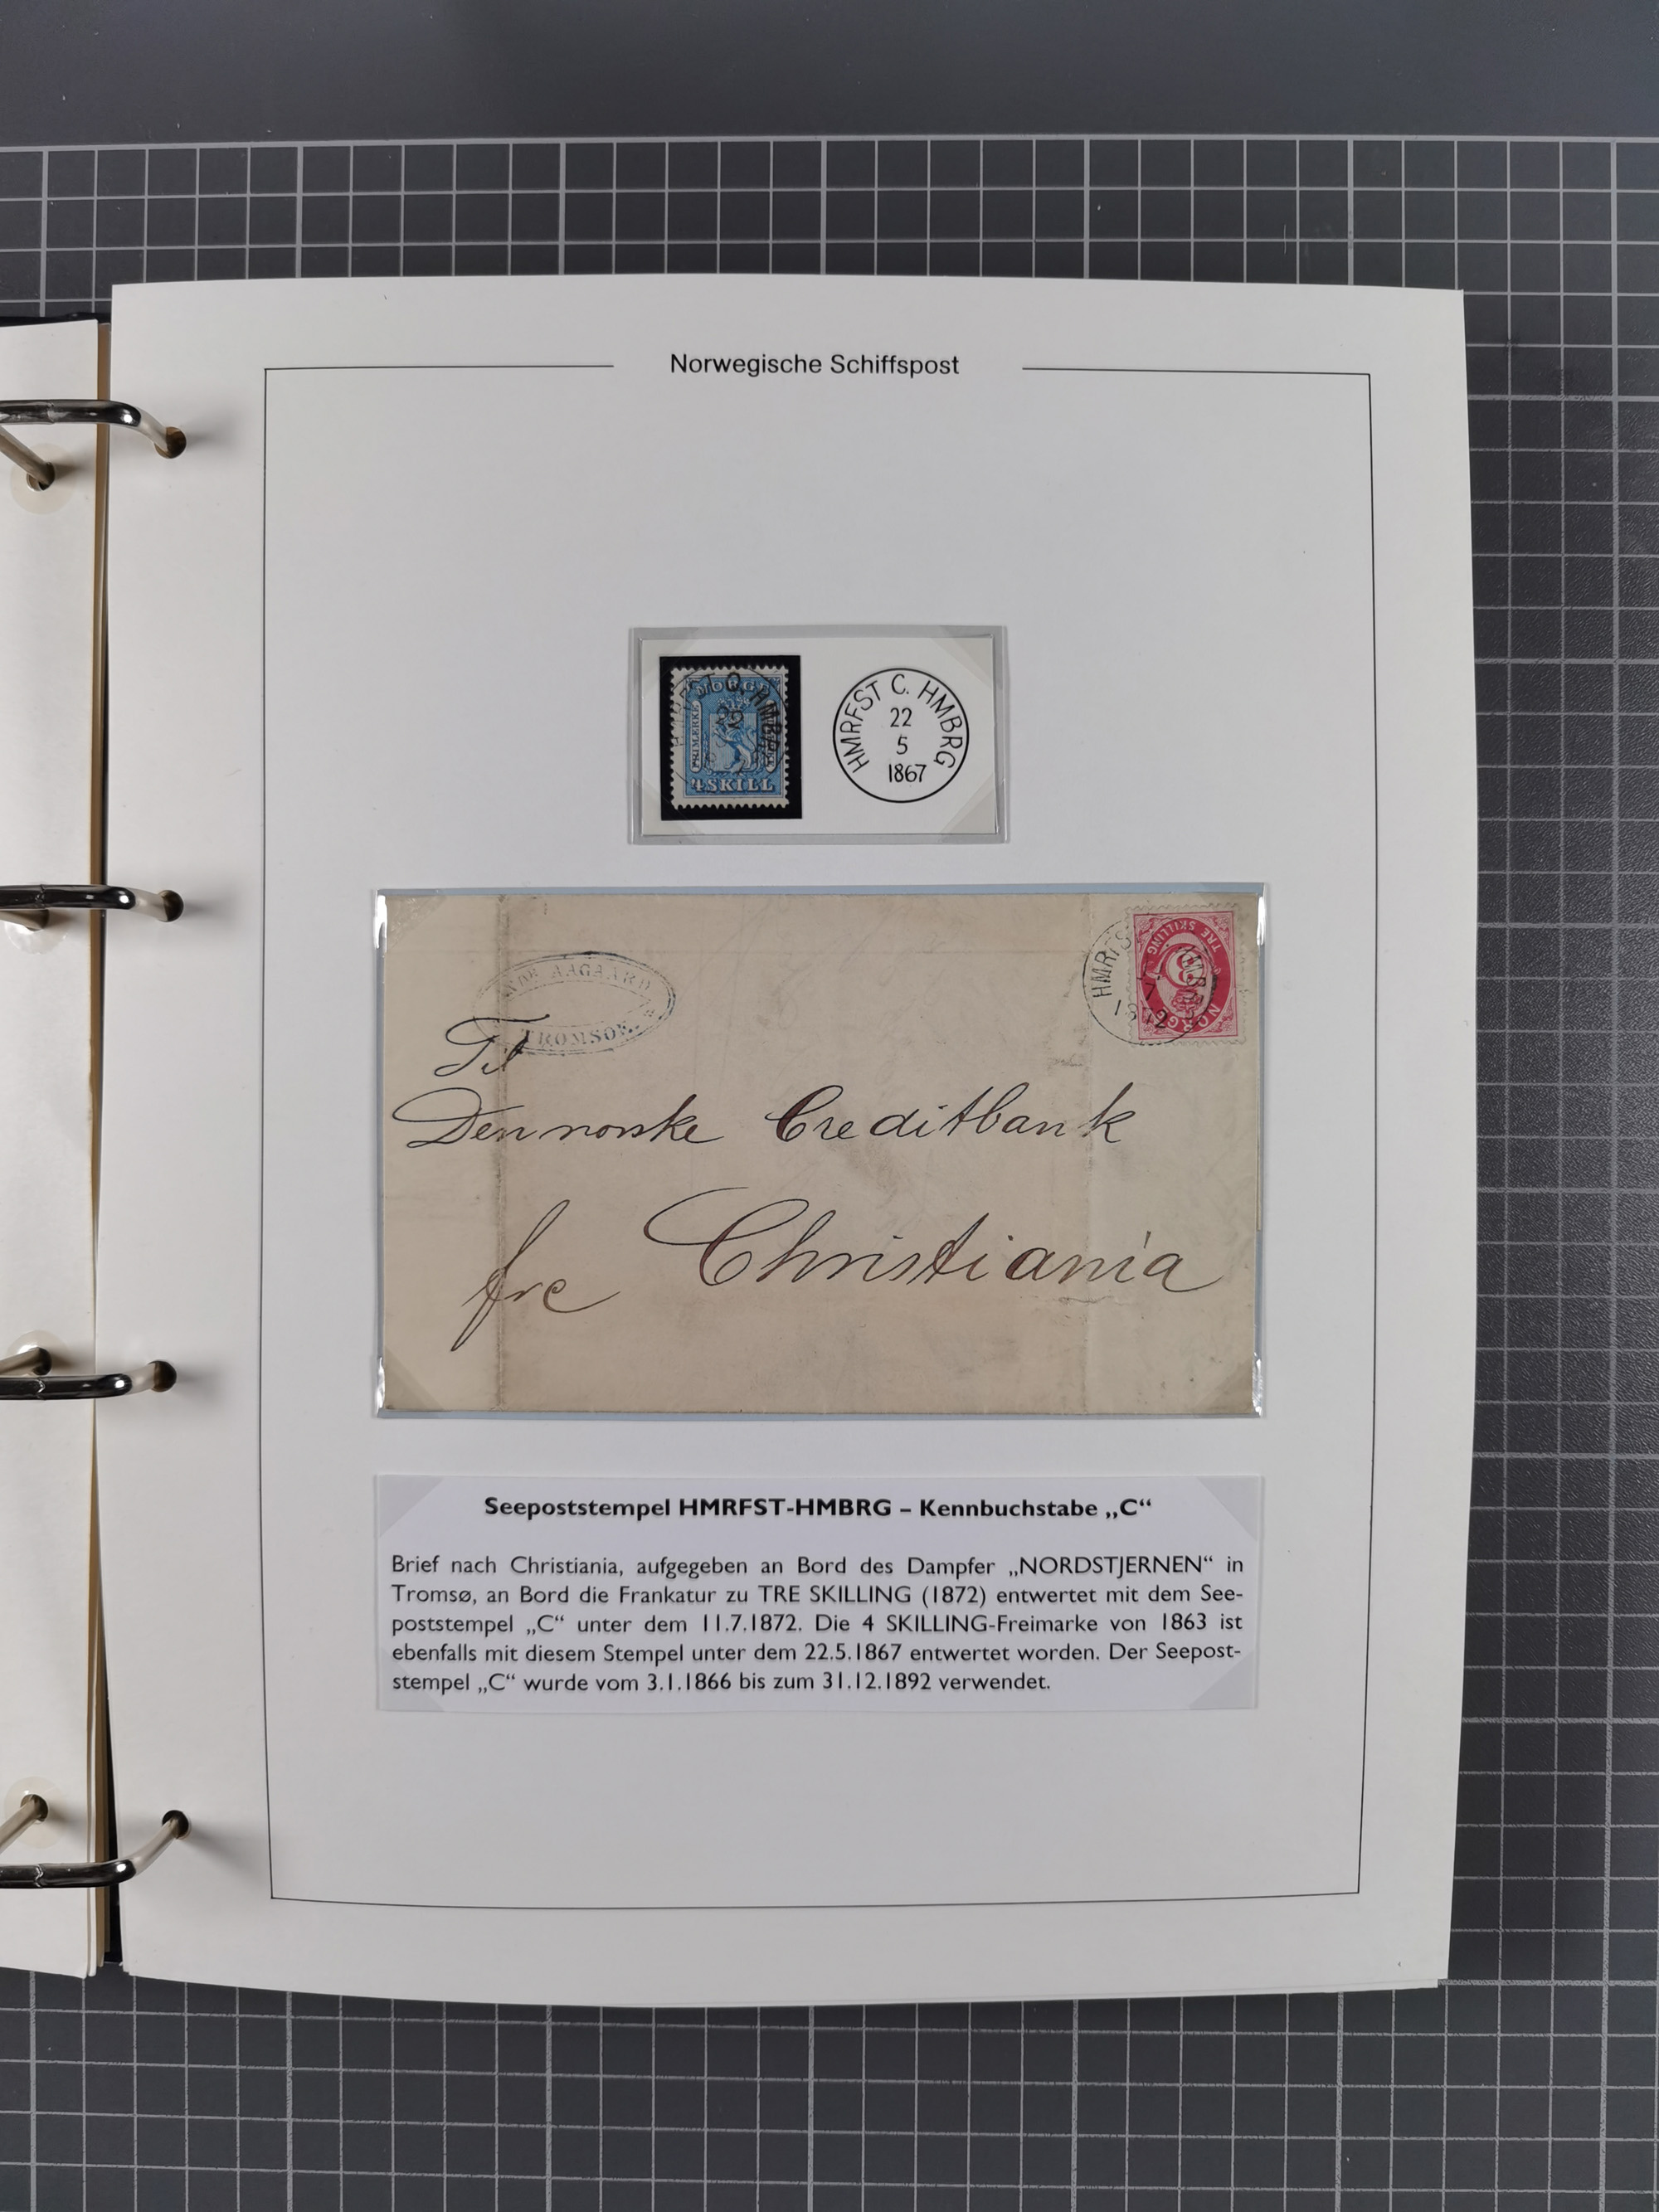 Norwegische Schiffspost
NORGE
FRIMERKE
4 SKILL
HMRFST C. HMBRG
22
5
1867
TRE SKILLING
NORGE
HMRFS
7
1872
AAGAARD
TROMSOE.
Til
Den norske Creditbank
frc Christiania
Seepoststempel HMRFST-HMBRG – Kennbuchstabe „C“
Brief nach Christiania, aufgegeben an Bord des Dampfer „NORDSTJERNEN“ in
Tromsø, an Bord die Frankatur zu TRE SKILLING (1872) entwertet mit dem See-
poststempel „C“ unter dem 11.7.1872. Die 4 SKILLING-Freimarke von 1863 ist
ebenfalls mit diesem Stempel unter dem 22.5.1867 entwertet worden. Der Seepost-
stempel „C“ wurde vom 3.1.1866 bis zum 31.12.1892 verwendet.